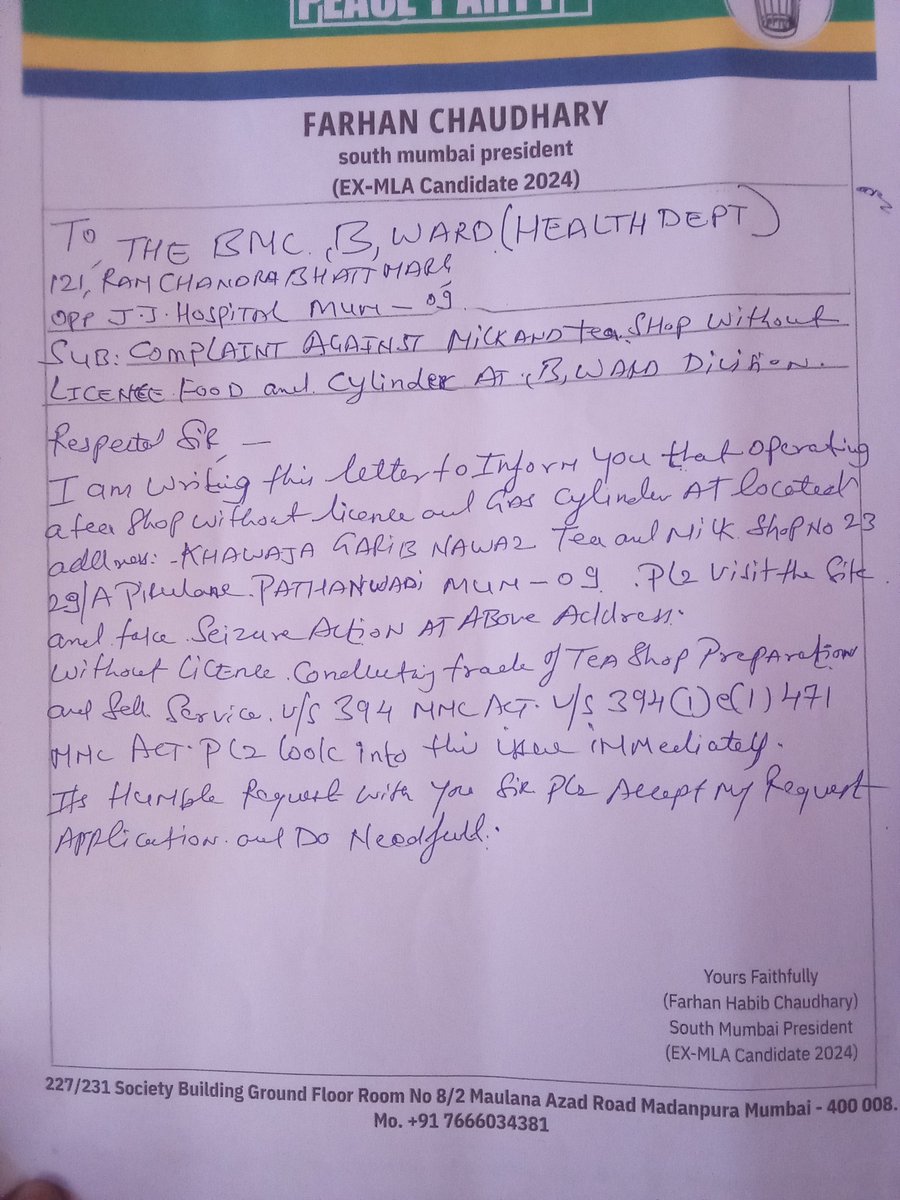 PEACE PARTY
FARHAN CHAUDHARY
south mumbai president
(EX-MLA Candidate 2024)
To,
THE BMC, B, WARD (HEALTH DEPT)
121, RAMCHANDRA BHATT MARG
OPP J.J. HOSPITAL MUM - 09.
SUB: COMPLAINT AGAINST MILK AND tea SHOP without
LICENCE FOOD and Cylinder AT, B, WARD Division.
Respected Sir, —
I am writing this letter to Inform you that operating
a tea Shop without licence and Gas cylinder AT located
address: - KHAWAJA GARIB NAWAZ Tea and Milk Shop No 23
29/A PATHANWADI MUM - 09. Plz visit the Site
and take Seizure Action AT Above Address.
Without Licence Conducting trade of TEA Shop Preparation
and Sell Service. U/S 394 MMC ACT. U/S 394(1)e(1) 471
MMC ACT. Plz look into this issue immediately.
Its Humble Request with you Sir Plz Accept My Request
Application and Do Needfull.
Yours Faithfully
(Farhan Habib Chaudhary)
South Mumbai President
(EX-MLA Candidate 2024)
227/231 Society Building Ground Floor Room No 8/2 Maulana Azad Road Madanpura Mumbai - 400 008.
Mo. +91 7666034381